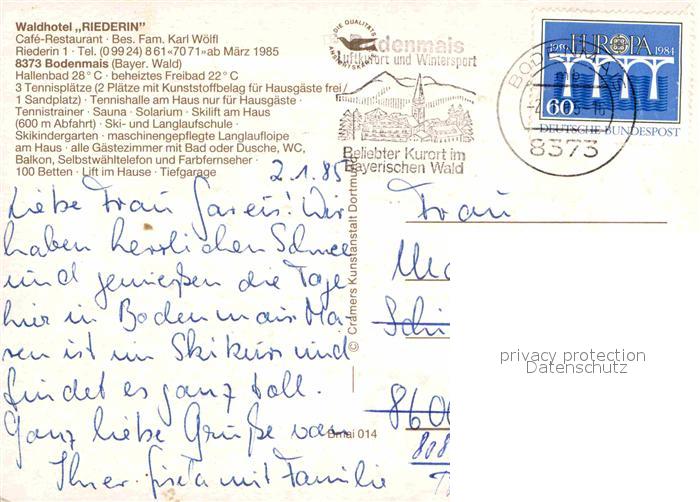 Waldhotel „RIEDERIN"
Café-Restaurant · Bes. Fam. Karl Wölfl
Riederin 1 · Tel. (0 99 24) 8 61 «70 71» ab März 1985
8373 Bodenmais (Bayer. Wald)
Hallenbad 28° C · beheiztes Freibad 22° C
3 Tennisplätze (2 Plätze mit Kunststoffbelag für Hausgäste frei /
1 Sandplatz) · Tennishalle am Haus nur für Hausgäste ·
Tennistrainer · Sauna · Solarium · Skilift am Haus
(600 m Abfahrt) · Ski- und Langlaufschule ·
Skikindergarten · maschinengepflegte Langlaufloipe
am Haus · alle Gästezimmer mit Bad oder Dusche, WC,
Balkon, Selbstwähltelefon und Farbfernseher ·
100 Betten · Lift im Hause · Tiefgarage
2.1.85
Liebe Frau Gareis! Wir
haben herrlichen Schnee
und genießen die Tage
hier in Bodenmais. Ma-
ren ist im Skikurs und
findet es ganz toll.
Ganz liebe Grüße von
Ihrer Gisela mit Familie
© Crämers Kunstanstalt Dortmund
Bmai 014
DIE QUALITÄTS
Bodenmais
Luftkurort und Wintersport
Beliebter Kurort im
Bayerischen Wald
1959 EUROPA 1984
60
DEUTSCHE BUNDESPOST
BODENMAIS
8373
Frau
8600
808
privacy protection
Datenschutz